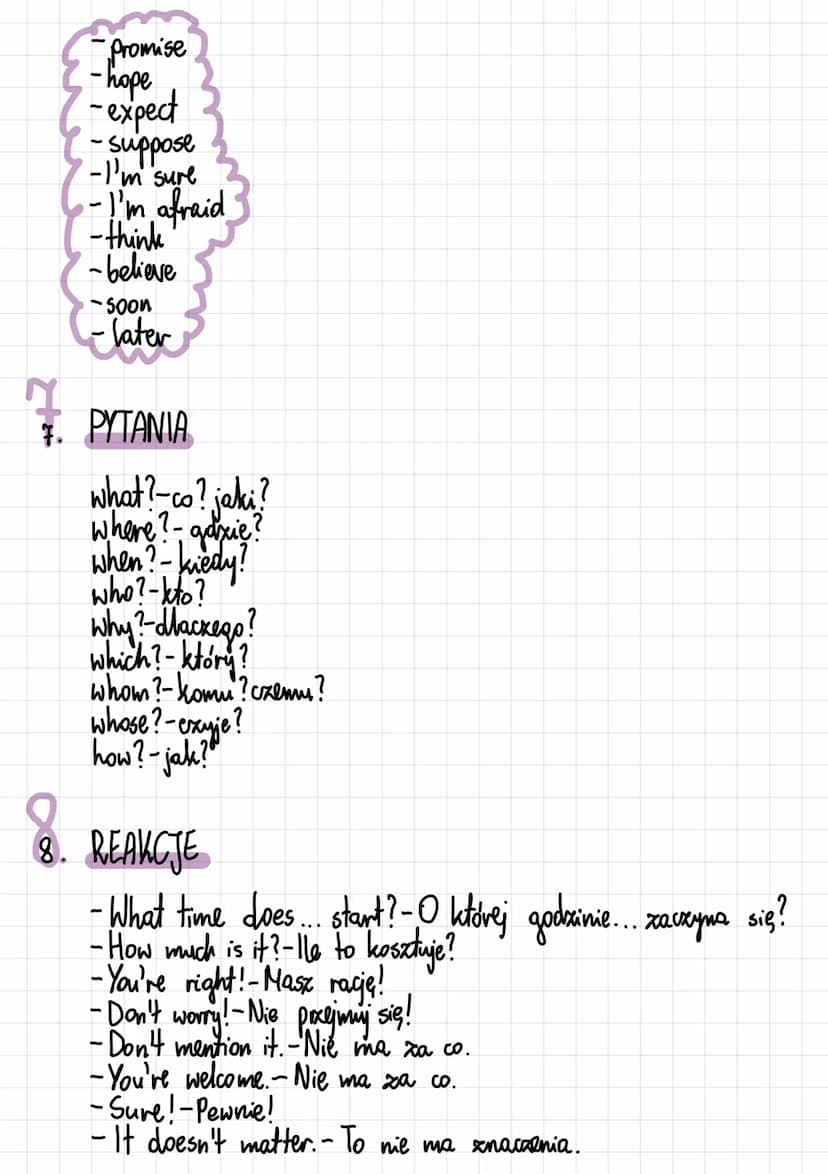 - promise
- hope
- expect
- suppose
- I'm sure
- I'm afraid
- think
- believe
- soon
- later
7
7. PYTANIA
what?-co? jaki?
where?-gdzie?
when?-kiedy?
who?-kto?
why?-dlaczego?
which?-który?
whom?-komu? czemu?
whose?-czyje?
how?-jak?
8
8. REAKCJE
- What time does... start?-O której godzinie... zaczyna się?
- How much is it?-Ile to kosztuje?
- You're right!-Masz rację!
- Don't worry!-Nie przejmuj się!
- Don't mention it.-Nie ma za co.
- You're welcome.-Nie ma za co.
- Sure!-Pewnie!
- It doesn't matter.-To nie ma znaczenia.